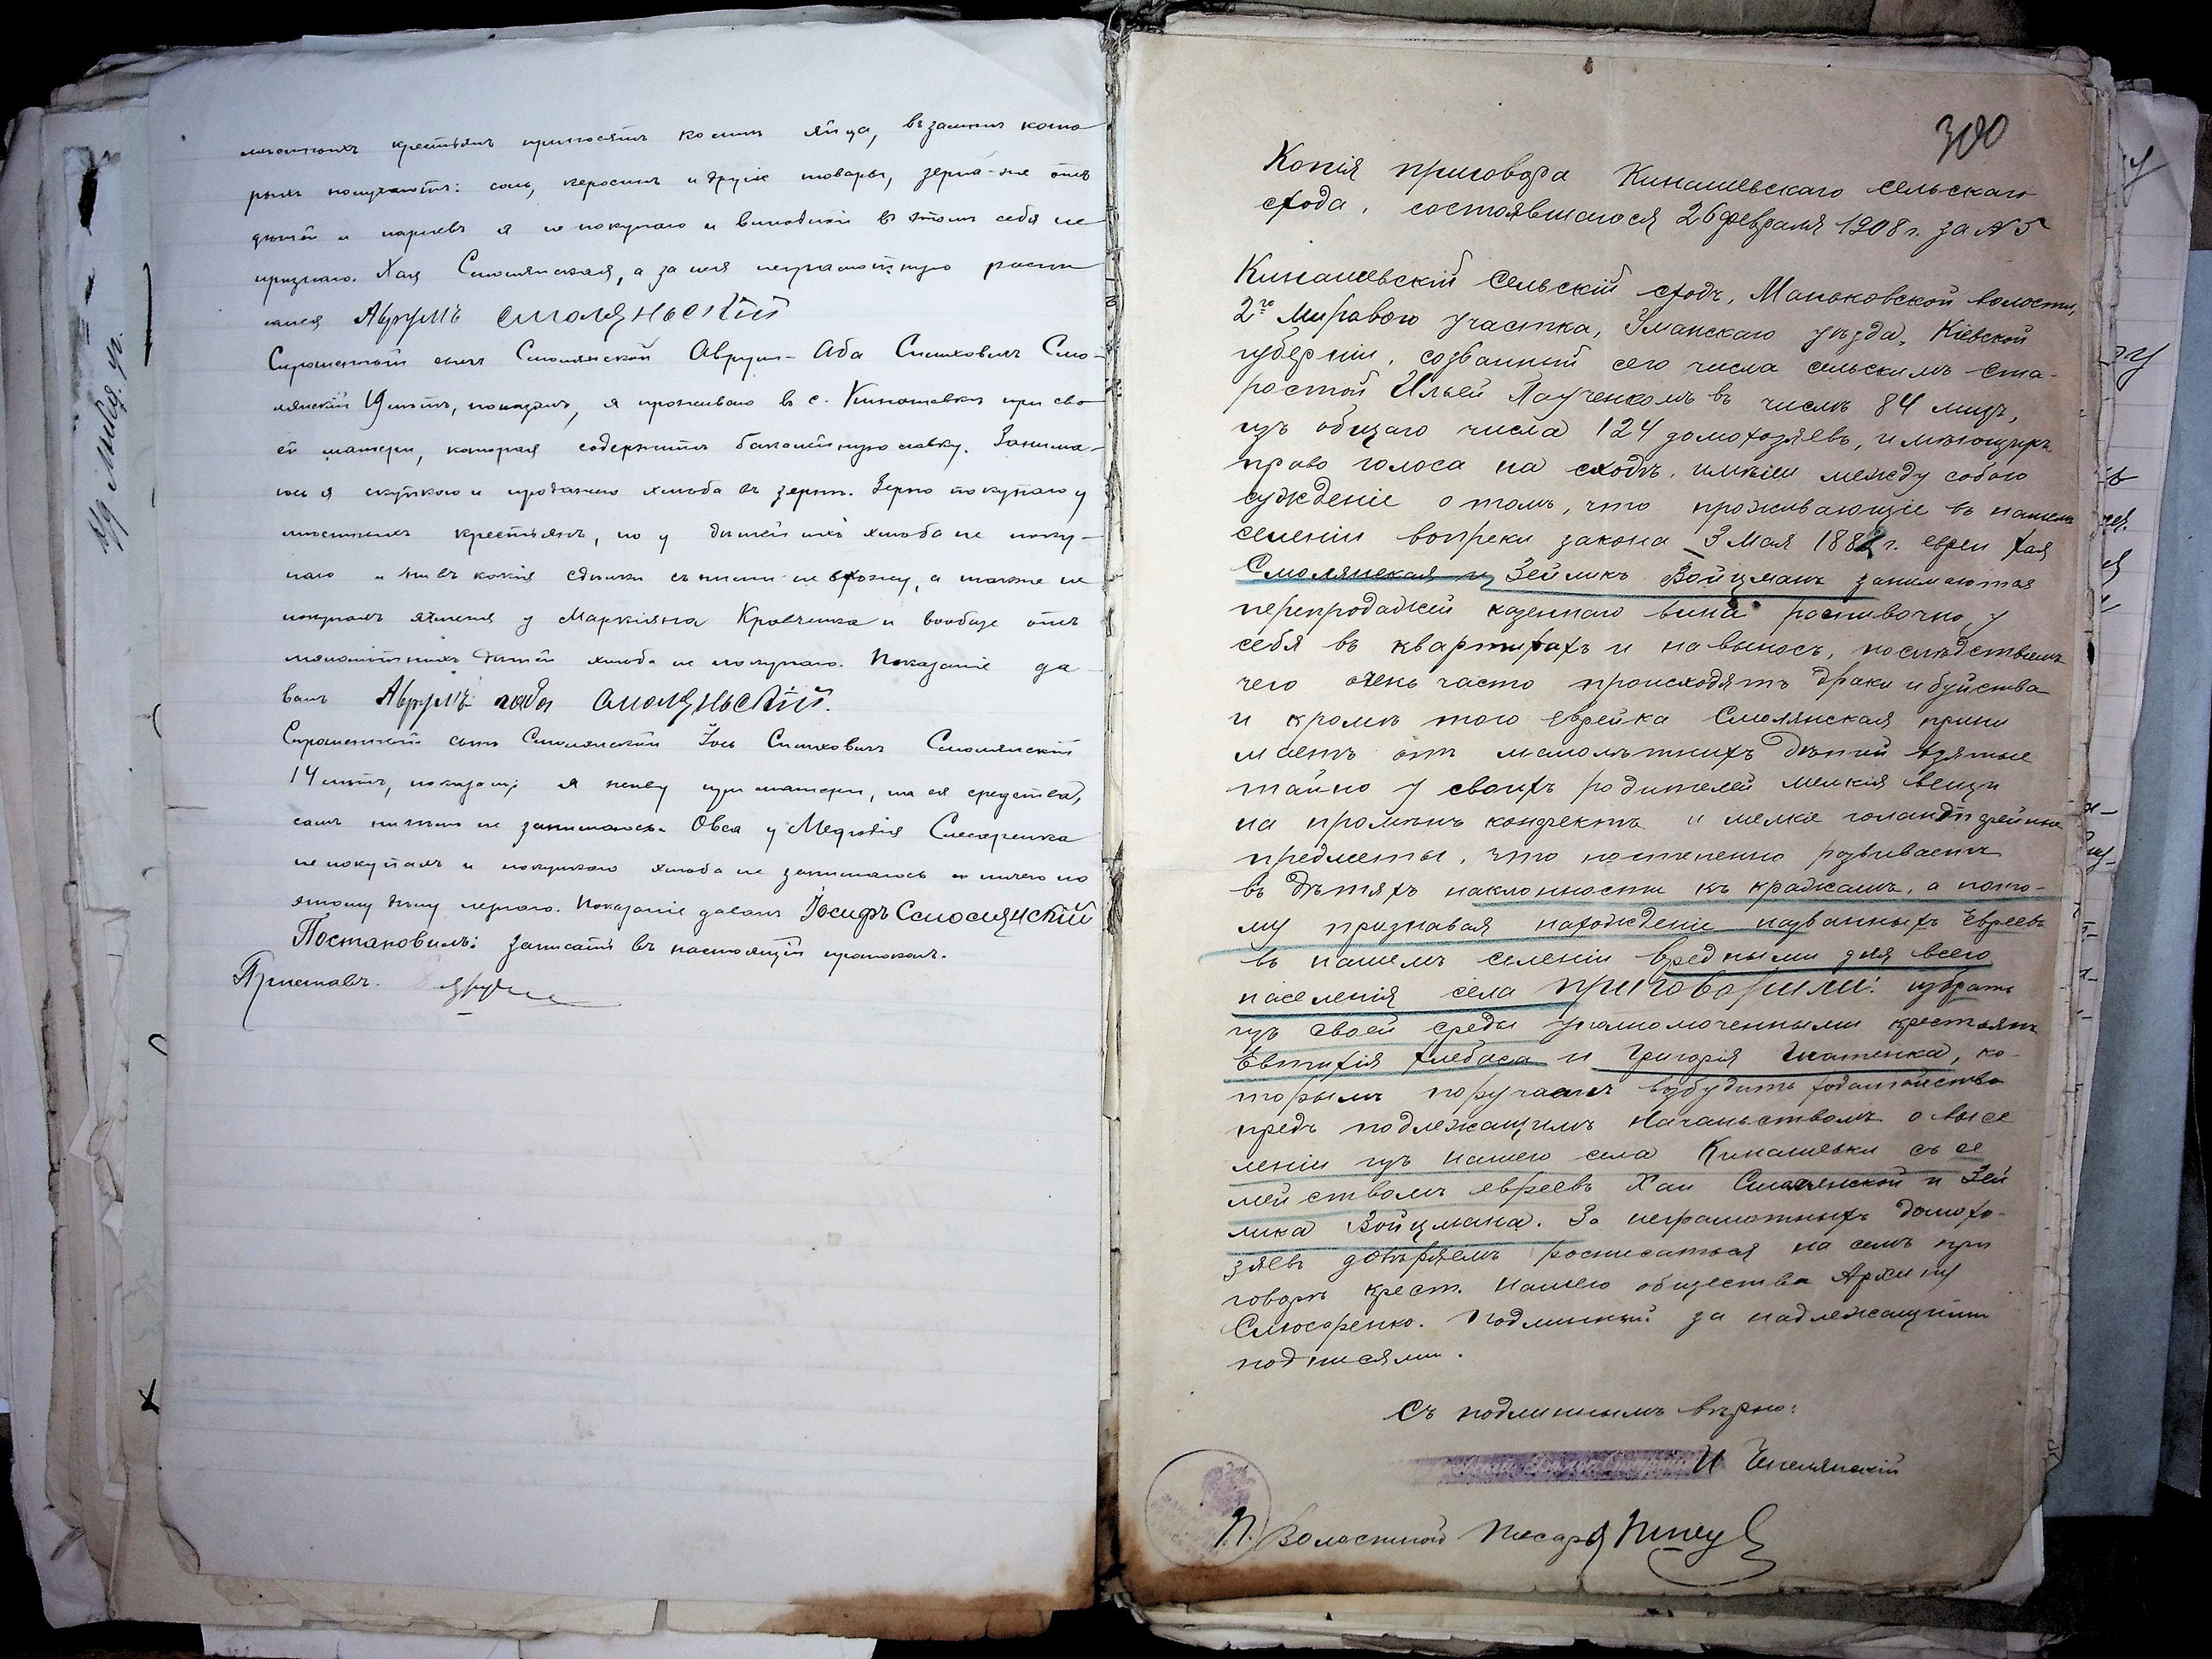 мѣстныхъ крестьянъ приносятъ ко мнѣ яйца, въ замѣнъ кото
рыхъ получаютъ: соль, керосинъ и другіе товары, зерна-же отъ
дѣтей и парней я не покупаю и виновной въ этомъ себя не
признаю. Хая Смолянская, а за нея неграмотную распи
сался Аврумъ Смоляньскій
Спрошенный сынъ Смолянской Аврум-Аба Сымховичъ Смо-
лянскій 19 лѣтъ, показалъ, я проживаю въ с. Кинашевкѣ при сво
ей матери, которая содержитъ бакалейную лавку. Занима-
юсь я скупкою и продажею хлѣба въ зернѣ. Зерно покупаю у
мѣстныхъ крестьянъ, но у дѣтей ихъ хлѣба не поку-
паю и ни въ какія сдѣлки съ ними не вхожу, а также не
покупалъ ячменя у Маркіяна Кравченка и вообще отъ
малолѣтнихъ дѣтей хлѣба не покупаю. Показаніе да
валъ Аврумъ Аба Смоляньскій.
Спрошенный сынъ Смолянской Іось Сымховичъ Смолянскій
14 лѣтъ, показалъ; я живу при матери, на ея средства,
самъ ничѣмъ не занимаюсь. Овса у Мефодія Слюсаренка
не покупалъ и покупкою хлѣба не занимаюсь и ничего по
этому дѣлу не знаю. Показаніе давалъ Іосифъ Смолянскій
Постановилъ: записать въ настоящій протоколъ.
Приставъ.
300
Копія приговора Кинашевскаго сельскаго
схода, состоявшагося 26 февраля 1908 г. за № 5
Кинашевскій Сельскій сходъ, Маньковской волости,
2го Мироваго участка, Уманскаго уѣзда, Кіевской
губерніи, созванный сего числа сельскимъ ста-
ростой Ильей Паученкомъ въ числѣ 84 лицъ,
изъ общаго числа 124 домохозяевъ, имѣющихъ
право голоса на сходѣ, имѣли между собою
сужденіе о томъ, что проживающіе въ нашемъ
селеніи вопреки закона 3 Мая 1882 г. евреи Хая
Смолянская и Зейликъ Войцманъ занимаются
перепродажей казеннаго вина роспивочно, у
себя въ квартирахъ и на выносъ, послѣдствіемъ
чего очень часто происходятъ драки и буйства
и кромѣ того еврейка Смолянская прини
маетъ отъ малолѣтнихъ дѣтей взятые
тайно у своихъ родителей мелкія вещи
на промѣнъ конфектъ и мелкіе голантерейные
предметы, что постепенно развиваетъ
въ дѣтяхъ наклонности къ кражамъ, а пото-
му признавая нахожденіе названныхъ Евреевъ
въ нашемъ селеніи вредными для всего
населенія села приговорили: избрать
изъ своей среды уполномоченными крестьянъ
Евтихія Хлебаса и Григорія Игнатенка, ко-
торымъ поручаемъ возбудить ходатайство
предъ подлежащимъ Начальствомъ о высе
леніи изъ нашего села Кинашевки съ се
мействомъ евреевъ Хаи Смолянской и Зей
лика Войцмана. За неграмотныхъ домохо-
зяевъ довѣряемъ росписаться на семъ при
говорѣ крест. нашего общества Архипу
Слюсаренко. Подлинный за надлежащими
подписями.
Съ подлиннымъ вѣрно:
П. Волостной Писарь